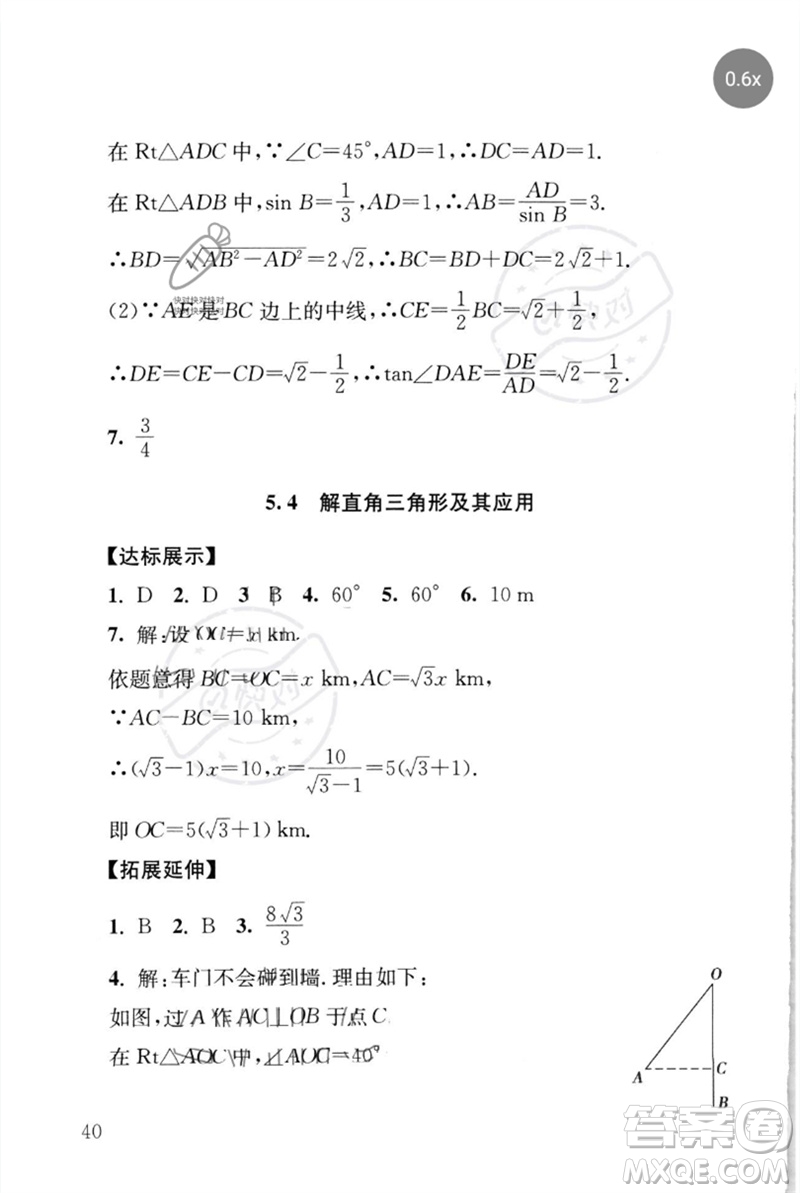 0.6x
在 Rt△ADC 中,∵∠C=45°,AD=1,∴DC=AD=1.
在 Rt△ADB 中,sin B=1/3,AD=1,∴AB=AD/sin B=3.
∴BD=√(AB²-AD²)=2√2,∴BC=BD+DC=2√2+1.
(2)∵AE 是 BC 边上的中线,∴CE=1/2BC=√2+1/2,
∴DE=CE-CD=√2-1/2,∴tan∠DAE=DE/AD=√2-1/2.
7. 3/4
5.4 解直角三角形及其应用
【达标展示】
1. D 2. D 3 B 4. 60° 5. 60° 6. 10 m
7. 解:设 OC=x km.
依题意得 BC=OC=x km,AC=√3x km,
∵AC-BC=10 km,
∴(√3-1)x=10,x=10/(√3-1)=5(√3+1).
即 OC=5(√3+1) km.
【拓展延伸】
1. B 2. B 3. 8√3/3
4. 解:车门不会碰到墙.理由如下:
如图,过 A 作 AC⊥OB 于点 C
在 Rt△AOC 中,∠AOC=40°
O
A
C
B
40
快对快对快对
快对快对快对
答案卷
MXQE.COM